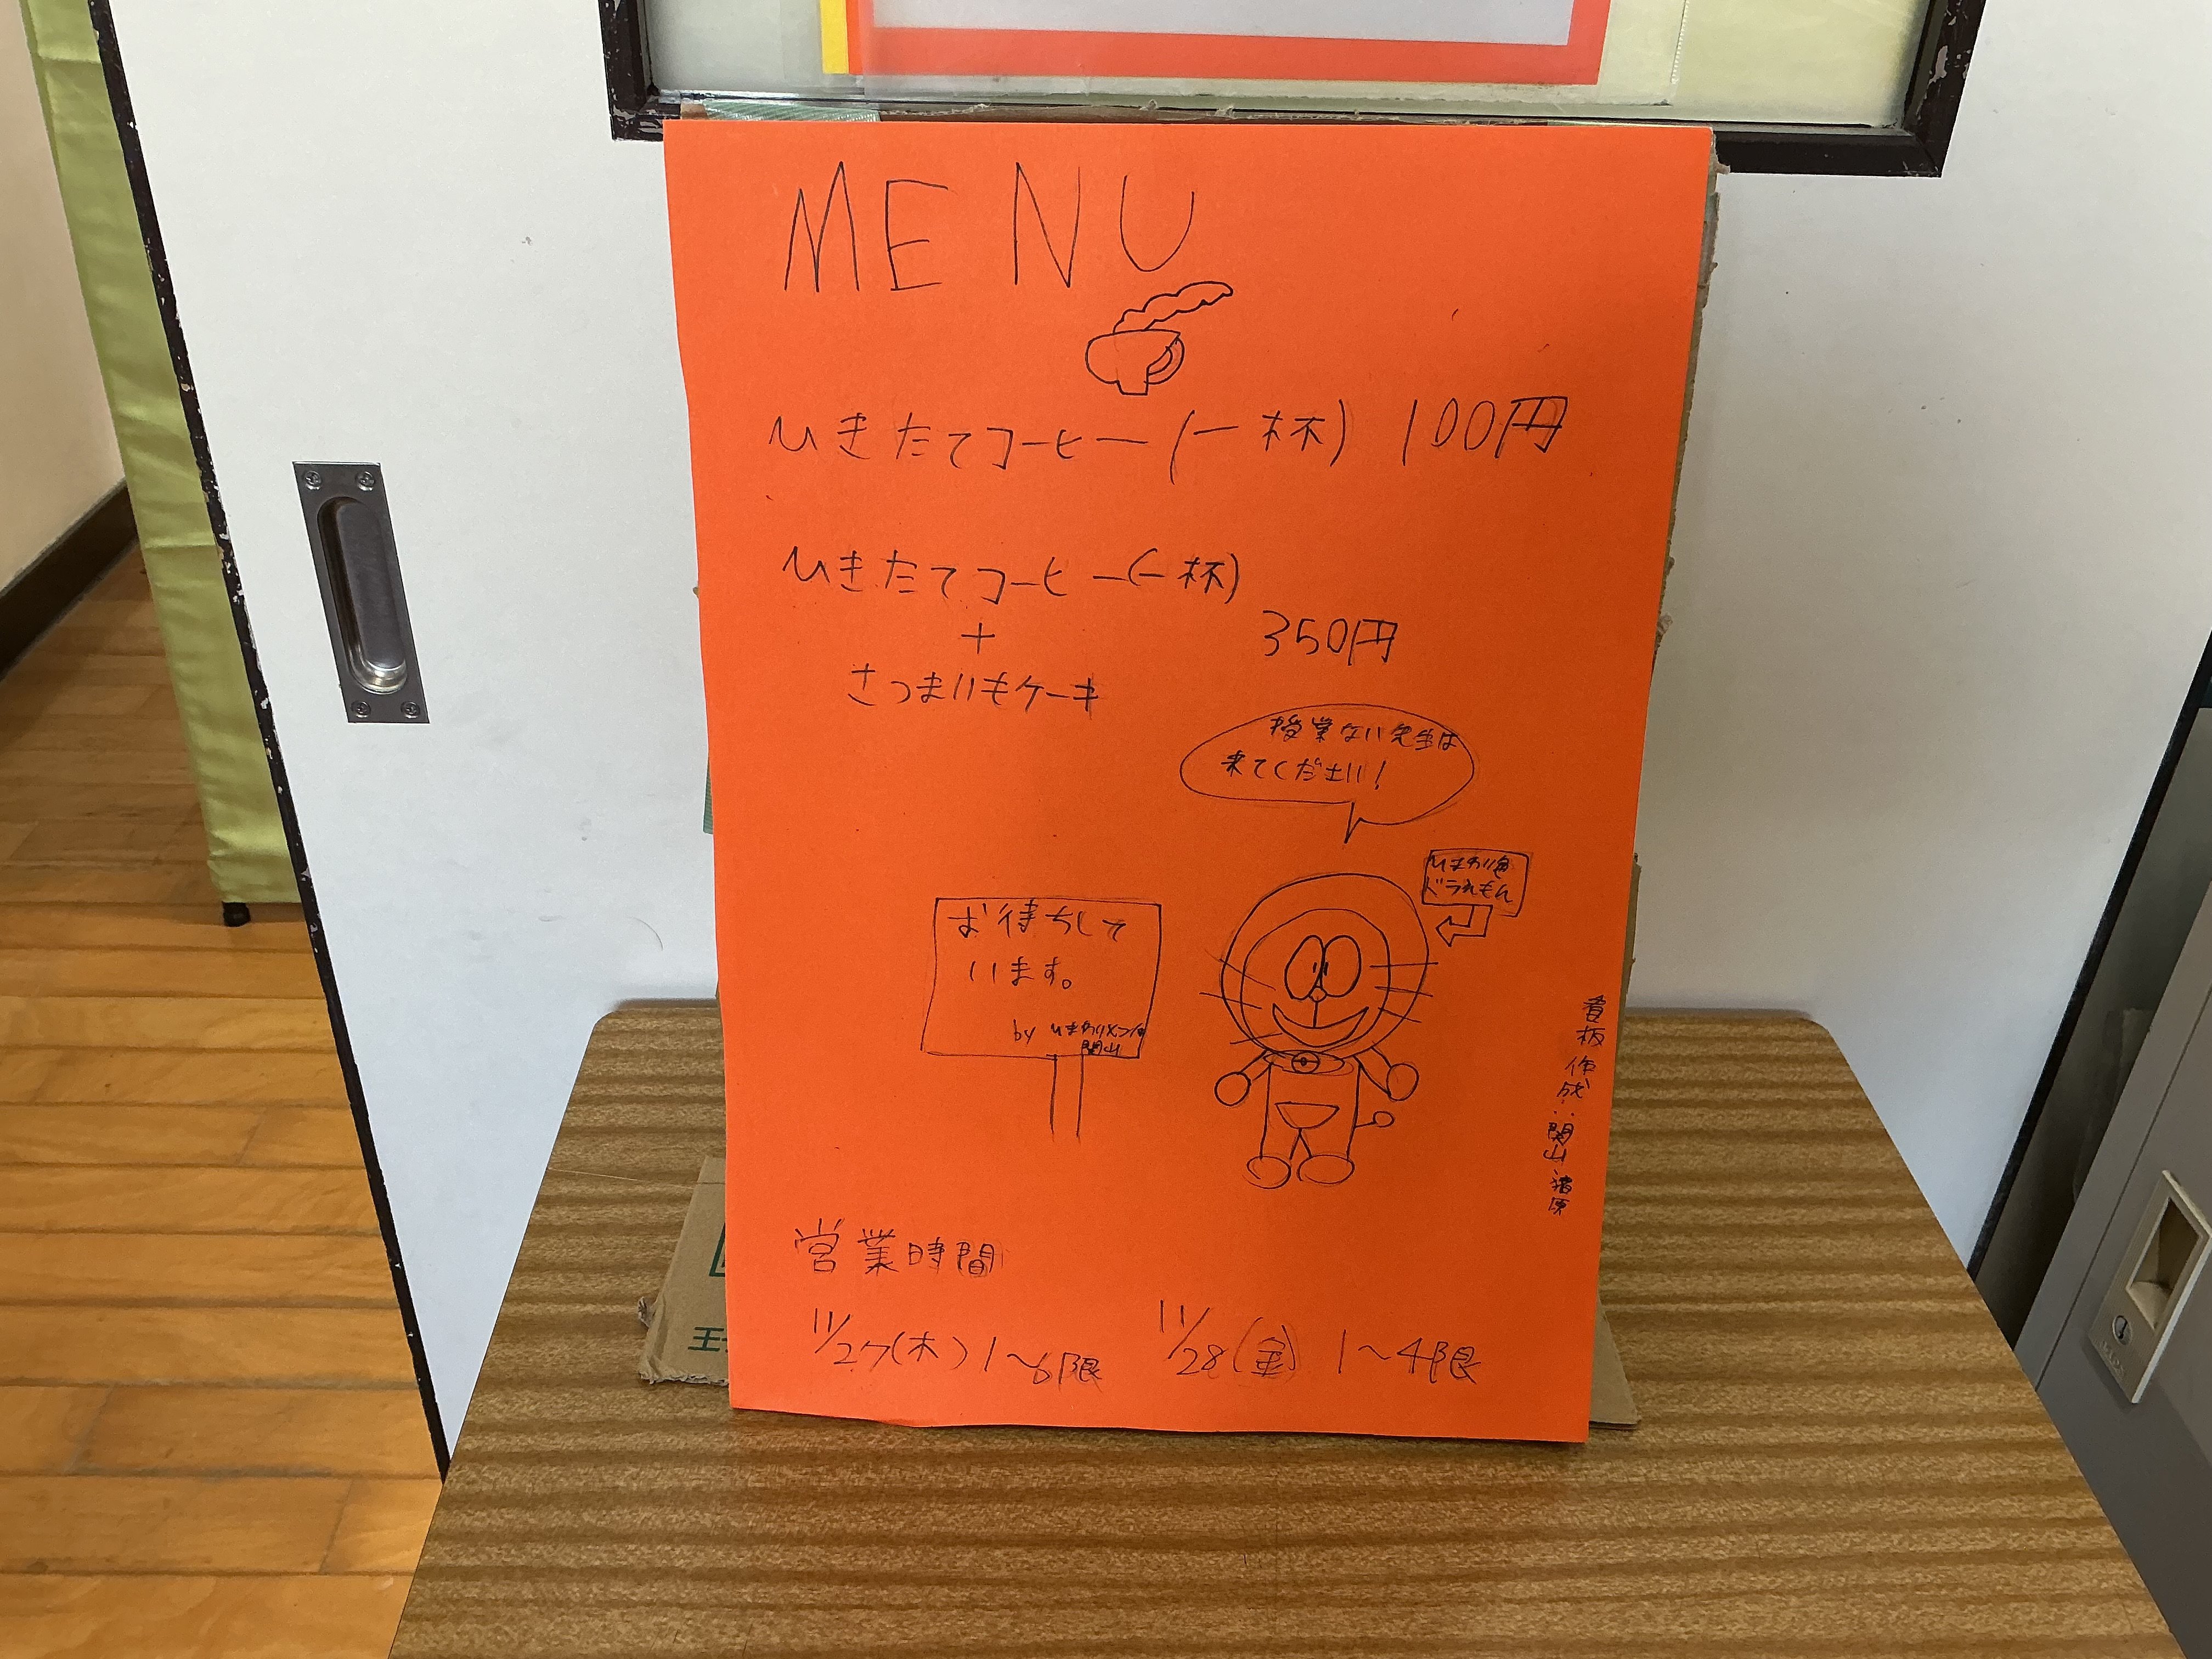 MENU
ひきたてコーヒー(一杯) 100円
ひきたてコーヒー(一杯)
+
350円
さつまいもケーキ
授業ない先生は
来てください!
ひまわり色
ドラえもん
お待ちして
います。
by ひまわりメンバー
関山
看板作成:関山 猪原
営業時間
11/27(木) 1~6限 11/28(金) 1~4限
王